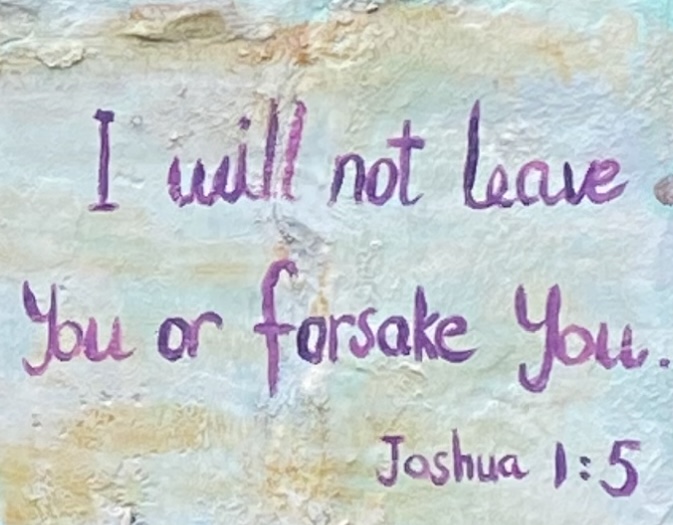 I will not leave
You or forsake You.
Joshua 1:5